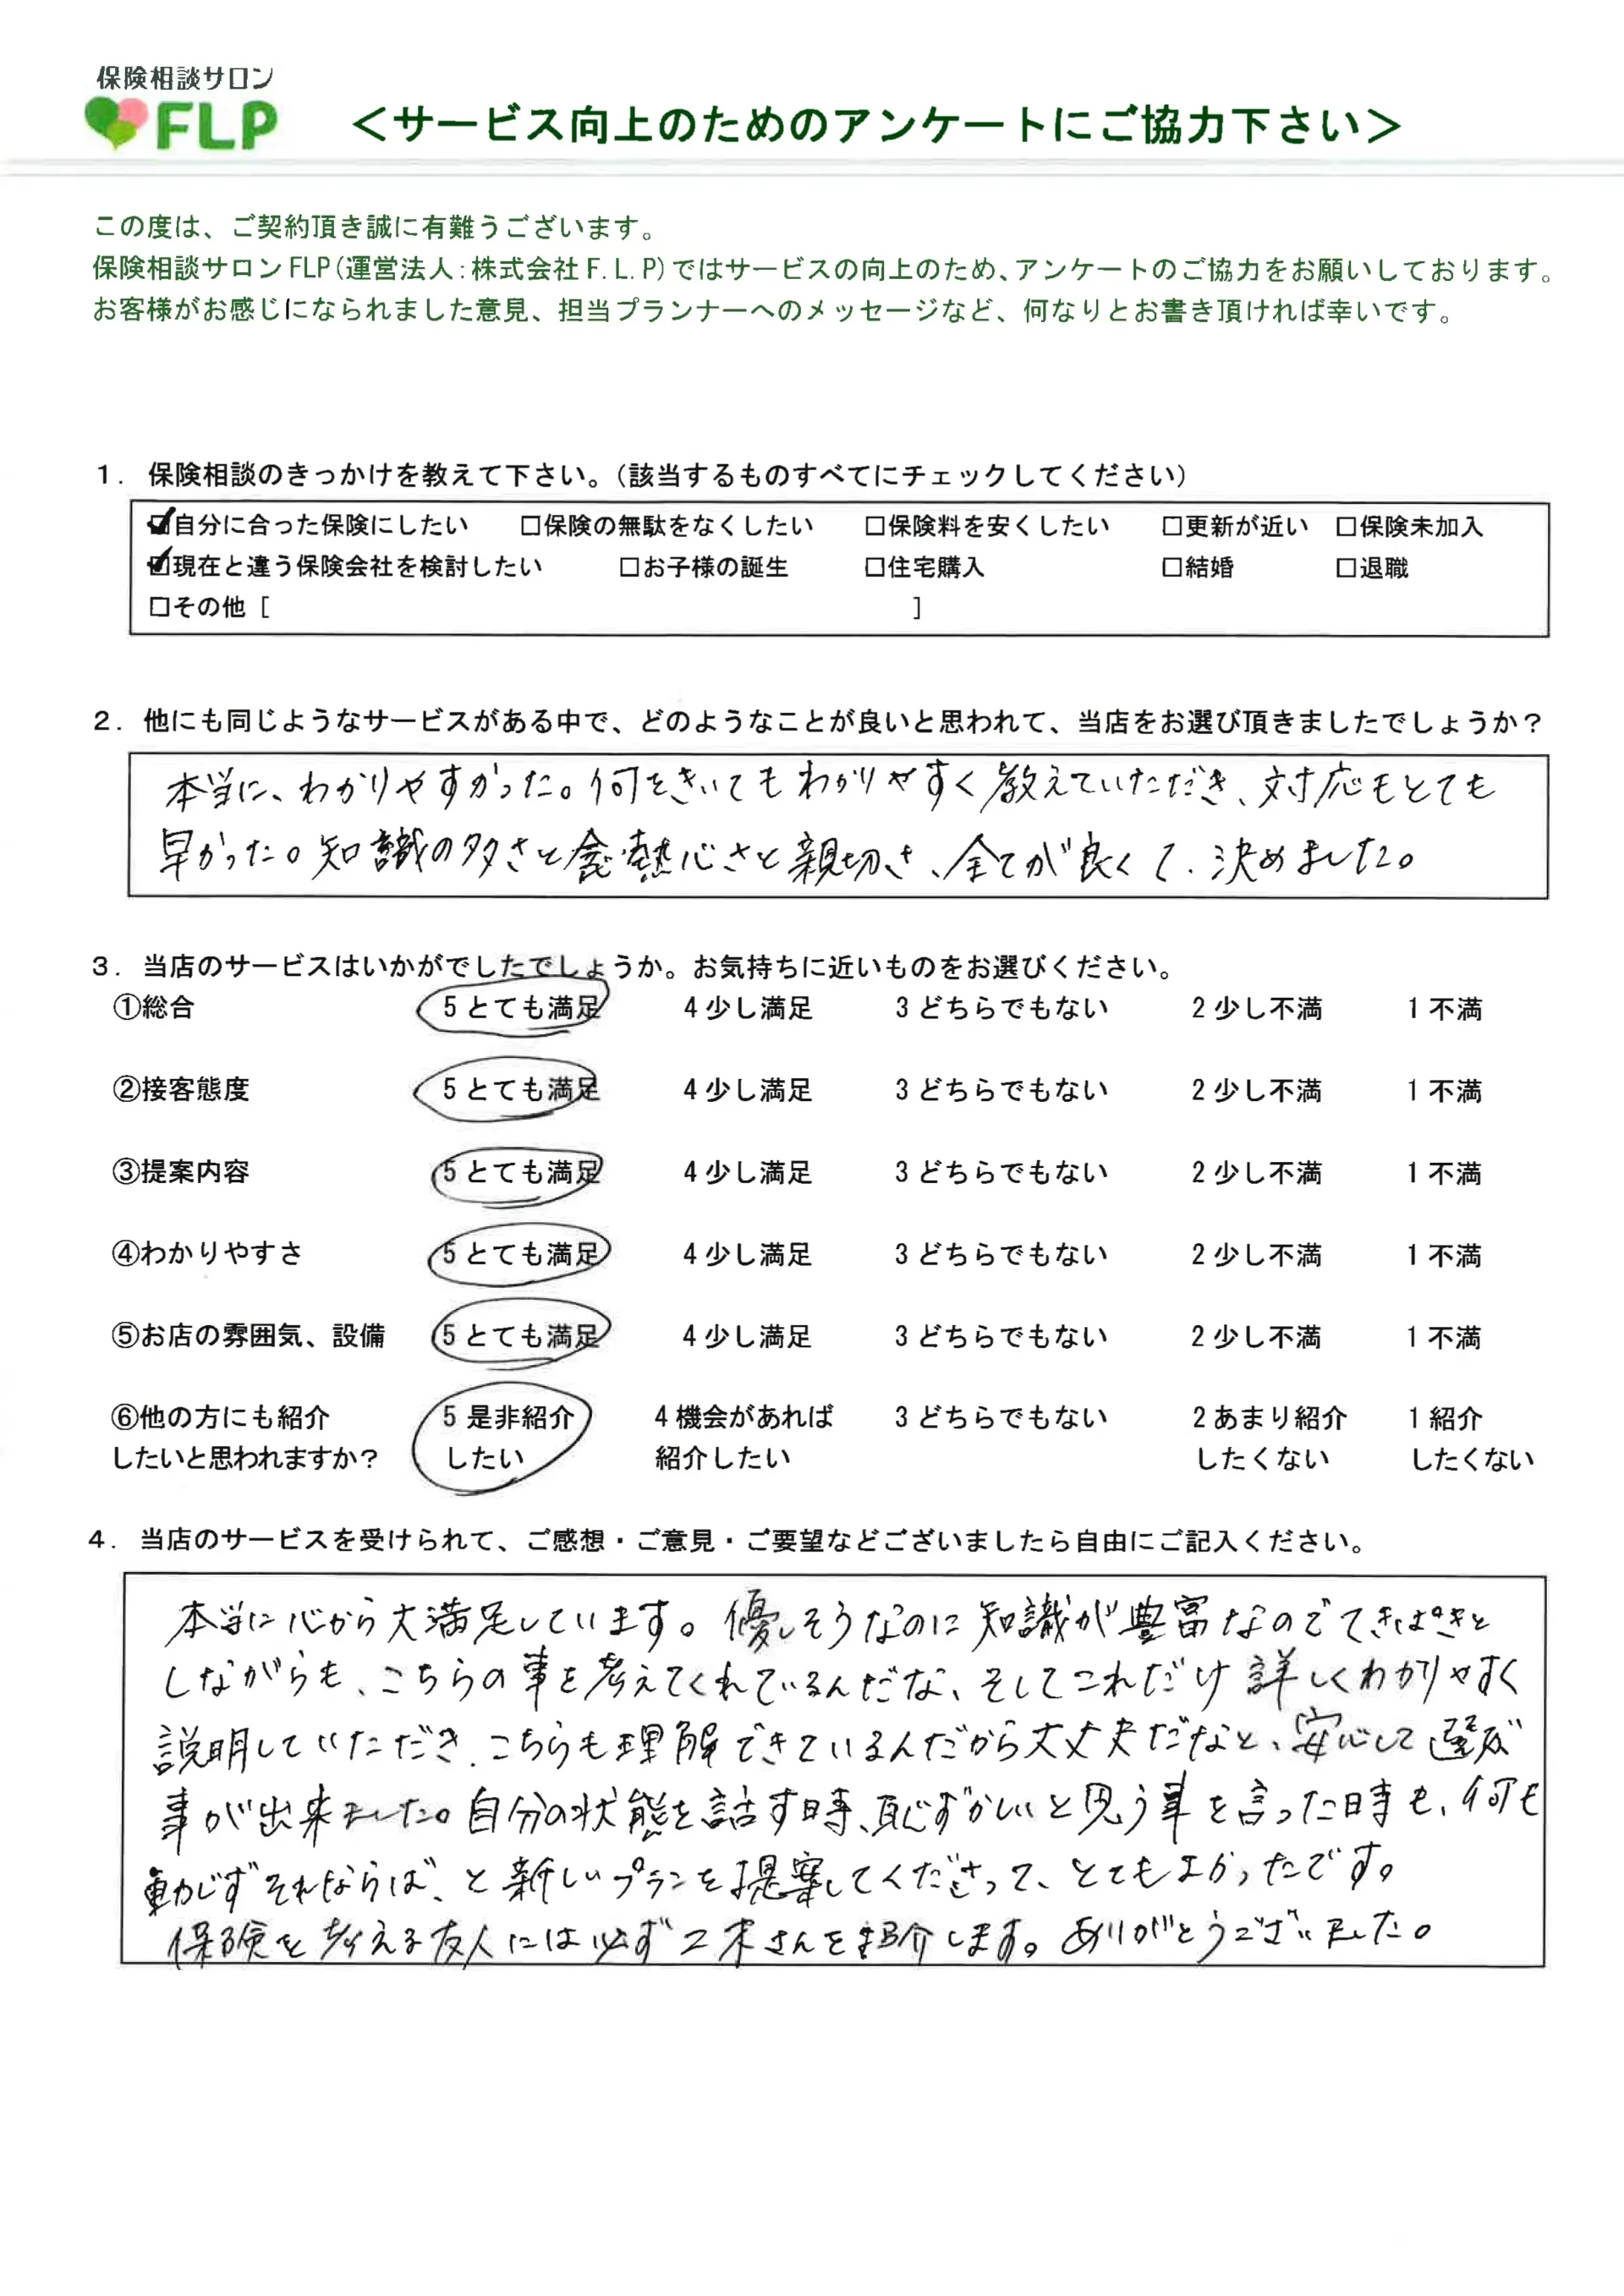 保険相談サロン
FLP
＜サービス向上のためのアンケートにご協力下さい＞
この度は、ご契約頂き誠に有難うございます。
保険相談サロンFLP(運営法人:株式会社F.L.P)ではサービスの向上のため、アンケートのご協力をお願いしております。
お客様がお感じになられました意見、担当プランナーへのメッセージなど、何なりとお書き頂ければ幸いです。
1．保険相談のきっかけを教えて下さい。（該当するものすべてにチェックしてください）
☑自分に合った保険にしたい　□保険の無駄をなくしたい　□保険料を安くしたい　□更新が近い　□保険未加入
☑現在と違う保険会社を検討したい　□お子様の誕生　□住宅購入　□結婚　□退職
□その他［　　　］
2．他にも同じようなサービスがある中で、どのようなことが良いと思われて、当店をお選び頂きましたでしょうか？
本当に、わかりやすかった。何をきいてもわかりやすく教えていただき、対応もとても
早かった。知識の多さと熱心さと親切さ、全てが良くて、決めました。
3．当店のサービスはいかがでしたでしょうか。お気持ちに近いものをお選びください。
①総合　5 とても満足　4 少し満足　3 どちらでもない　2 少し不満　1 不満
②接客態度　5 とても満足　4 少し満足　3 どちらでもない　2 少し不満　1 不満
③提案内容　5 とても満足　4 少し満足　3 どちらでもない　2 少し不満　1 不満
④わかりやすさ　5 とても満足　4 少し満足　3 どちらでもない　2 少し不満　1 不満
⑤お店の雰囲気、設備　5 とても満足　4 少し満足　3 どちらでもない　2 少し不満　1 不満
⑥他の方にも紹介　5 是非紹介　4 機会があれば　3 どちらでもない　2 あまり紹介　1 紹介
したいと思われますか？　したい　紹介したい　したくない　したくない
4．当店のサービスを受けられて、ご感想・ご意見・ご要望などございましたら自由にご記入ください。
本当に心から大満足しています。優しそうなのに知識が豊富なのでてきぱきと
しながらも、こちらの事を考えてくれているんだな、そしてこれだけ詳しくわかりやすく
説明していただき、こちらも理解できているんだから大丈夫だなと、安心して選ぶ
事が出来ました。自分の状態を話す時、恥ずかしいと思う事を言った時も、何も
動じずそれならば、と新しいプランを提案してくださって、とてもよかったです。
保険を考える友人には必ず二木さんを紹介します。ありがとうございました。